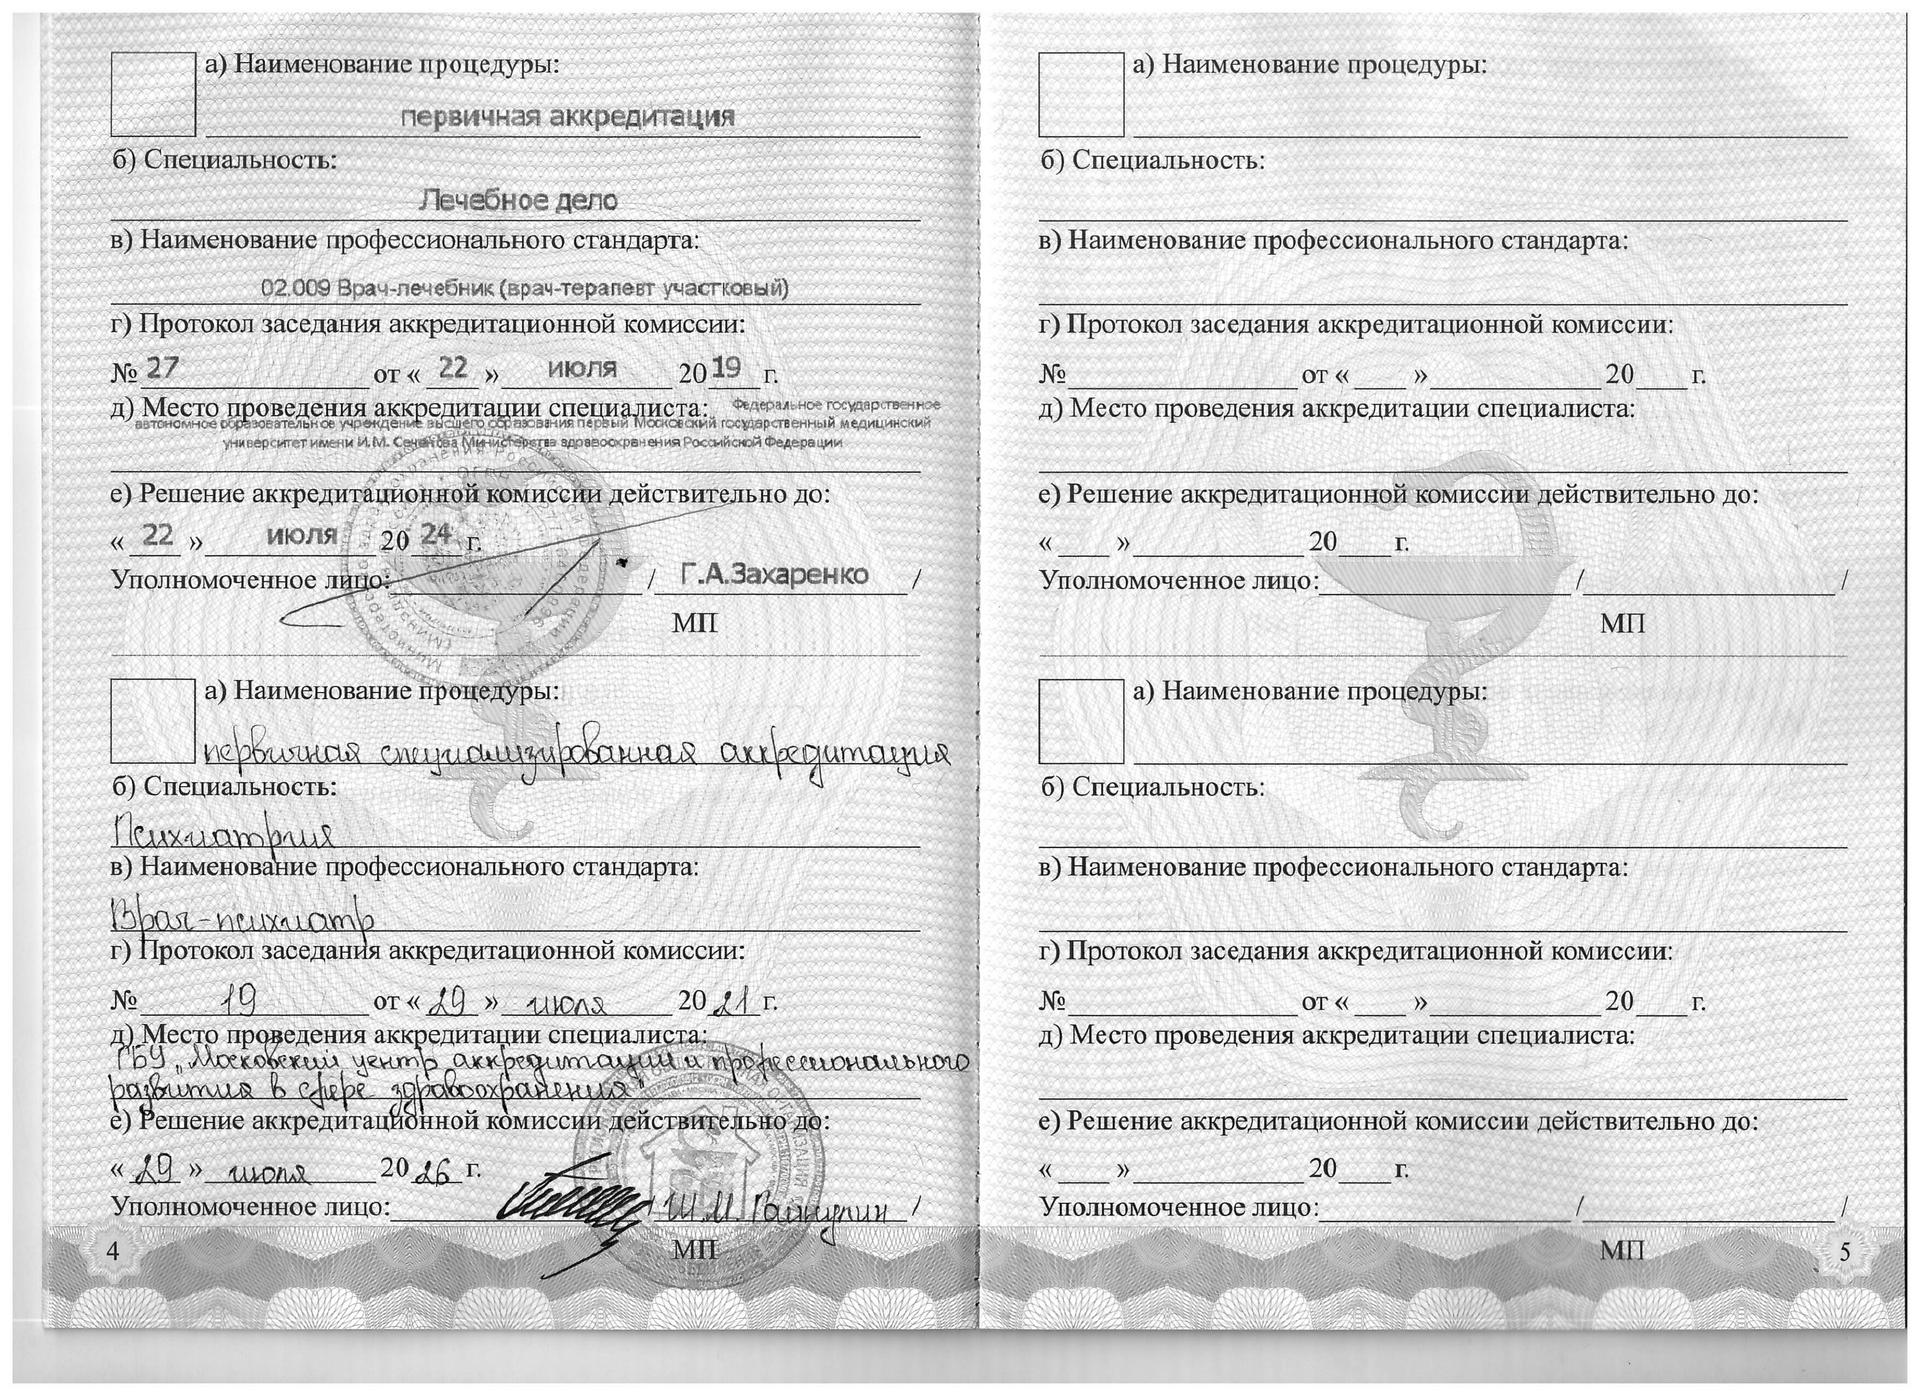 а) Наименование процедуры:
первичная аккредитация
б) Специальность:
Лечебное дело
в) Наименование профессионального стандарта:
02.009 Врач-лечебник (врач-терапевт участковый)
г) Протокол заседания аккредитационной комиссии:
№ 27 от « 22 » июля 20 19 г.
д) Место проведения аккредитации специалиста: Федеральное государственное
автономное образовательное учреждение высшего образования первый Московский государственный медицинский
университет имени И.М. Сеченова Министерства здравоохранения Российской Федерации
е) Решение аккредитационной комиссии действительно до:
« 22 » июля 20 24 г.
Уполномоченное лицо: / Г.А.Захаренко /
МП
а) Наименование процедуры:
первичная специализированная аккредитация
б) Специальность:
Психиатрия
в) Наименование профессионального стандарта:
Врач-психиатр
г) Протокол заседания аккредитационной комиссии:
№ 19 от « 29 » июля 20 21 г.
д) Место проведения аккредитации специалиста:
ГБУ „Московский центр аккредитации и профессионального
развития в сфере здравоохранения"
е) Решение аккредитационной комиссии действительно до:
« 29 » июля 20 26 г.
Уполномоченное лицо: / Ш.М. Гайнулин /
МП
4
а) Наименование процедуры:
б) Специальность:
в) Наименование профессионального стандарта:
г) Протокол заседания аккредитационной комиссии:
№ от « » 20 г.
д) Место проведения аккредитации специалиста:
е) Решение аккредитационной комиссии действительно до:
« » 20 г.
Уполномоченное лицо: / /
МП
а) Наименование процедуры:
б) Специальность:
в) Наименование профессионального стандарта:
г) Протокол заседания аккредитационной комиссии:
№ от « » 20 г.
д) Место проведения аккредитации специалиста:
е) Решение аккредитационной комиссии действительно до:
« » 20 г.
Уполномоченное лицо: / /
МП
5